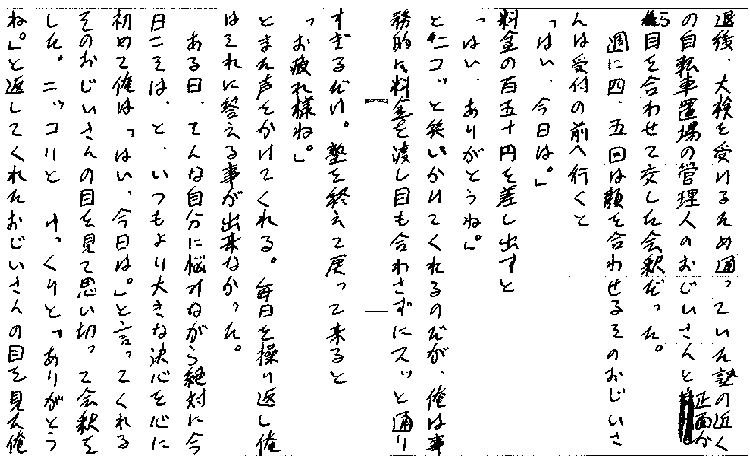 退後、大検を受けるため通っていた塾の近く
の自転車置場の管理人のおじいさんと正面か
ら目を合わせて交した会釈だった。
週に四、五回は顔を合わせるそのおじいさ
んは受付の前へ行くと
「はい、今日は。」
料金の百五十円を差し出すと
「はい、ありがとうね。」
とニコッと笑いかけてくれるのだが、俺は事
務的に料金を渡し目も合わさずにスッと通り
すぎるだけ。塾を終えて戻って来ると
「お疲れ様ね。」
とまた声をかけてくれる。毎日を操り返し俺
はそれに答える事が出来なかった。
ある日、そんな自分に悩みながら絶対に今
日こそは、と、いつもより大きな決心を心に
初めて俺は「はい、今日は。」と言ってくれる
そのおじいさんの目を見て思い切って会釈を
した。ニッコリと けっくりと「ありがとう
ね。」と返してくれたおじいさんの目を見た俺